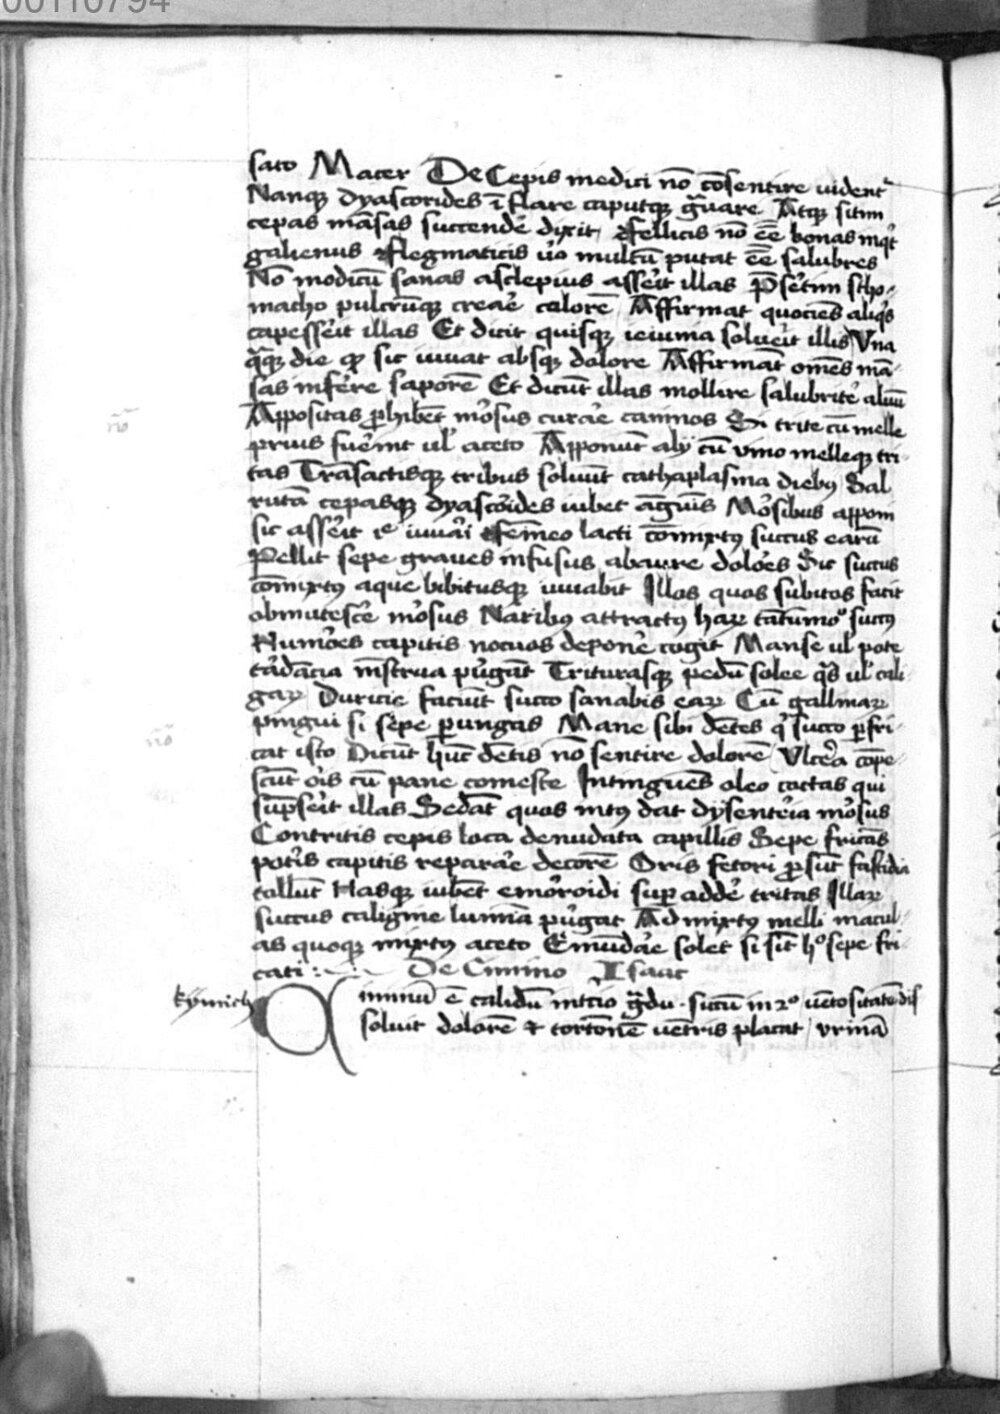 00110794
sato Macer De Cepis medici nō cōsentire vident᷑
Nanqꝫ dyascorides ī flare caputqꝫ g̃uare Atqꝫ sitim
cepas mā̃sas succende᷑ dixit ffellicis nō ēē bonas inqͥt
galienus fflegmaticis v̓o multū putat ēē salubres
No modicū sanas asclepius asse᷑it illas P̄se᷑tim stho-
macho pulcrūqꝫ crea᷑e colorē Affirmat quociēs aliqͥs
capesse᷑it illas Et dicit quisqꝫ ieiunia solue᷑it illis Vna
q̄qꝫ die ꝙ sic iuuat absqꝫ dolore Affirmāt om̄es mā̃
sas infe᷑re saporē Et dicūt illas mollire salubrite᷑ aluū
Appositas ꝓhibēt mo᷑sus cura᷑e caninos Si trite cū melle
prius fue᷑int ul᷑ aceto Apponūt alij cū vino melleqꝫ tri-
tas Trāsactisqꝫ tribus soluūt cathaplasma diebꝰ Sal
rutā cepasqꝫ dyasco᷑ides iubet āguis Mo᷑sibus apponi
sic asse᷑it re iuua᷑i ffemīeo lacti cōmixtꝰ succus earū
Pellit sepe graues infusus ab aure dolo᷑es Sic succus
cōmixtꝰ aque bibitusqꝫ iuuabit Illos quos subitos facit
obmutesce᷑ mo᷑sus Naribꝰ attractꝰ haꝝ tātūmo° succꝰ
Humo᷑es capitis nocuos depone᷑ cogit Manse ul᷑ pote
ta᷑dācia mēstrua pu᷑gāt Triturasqꝫ pedū solee q̄s ul᷑ cali-
gaꝝ Duricie faciūt succo sanabis eaꝝ Cū gallinaꝝ
pingui si sepe ꝑungas Mane sibi dētes qͥ succo ꝑfri-
cat isto Dicūt hūc dētis nō sentire dolorē Vlce᷑a cōpe
scūt oris cū pane comeste Intinguēs oleo coctas qui
sūpse᷑it illas Sedāt quos intꝰ dat dysente᷑ia mo᷑sus
Contritis cepis loca denudata capillis Sepe fricās
pote᷑is capitis repara᷑e decorē Oris fetori ꝓsūt fastidia
tollūt Hasqꝫ iubēt emo᷑roidi suꝑ adde᷑ tritas Illaꝝ
succus caligīne luminā pu᷑gat Ad mixtꝰ melli macul-
as quoqꝫ mixtꝰ aceto Emūda᷑e solet si sīt h° sepe fri-
cati :~ De Cimino Isaac
kymich
Ciminū ē calidū in tc̄io g̃du · siccū in 2° uētositatē dis
soluit dolorē ⁊ tortōnē uētris placat vrinā